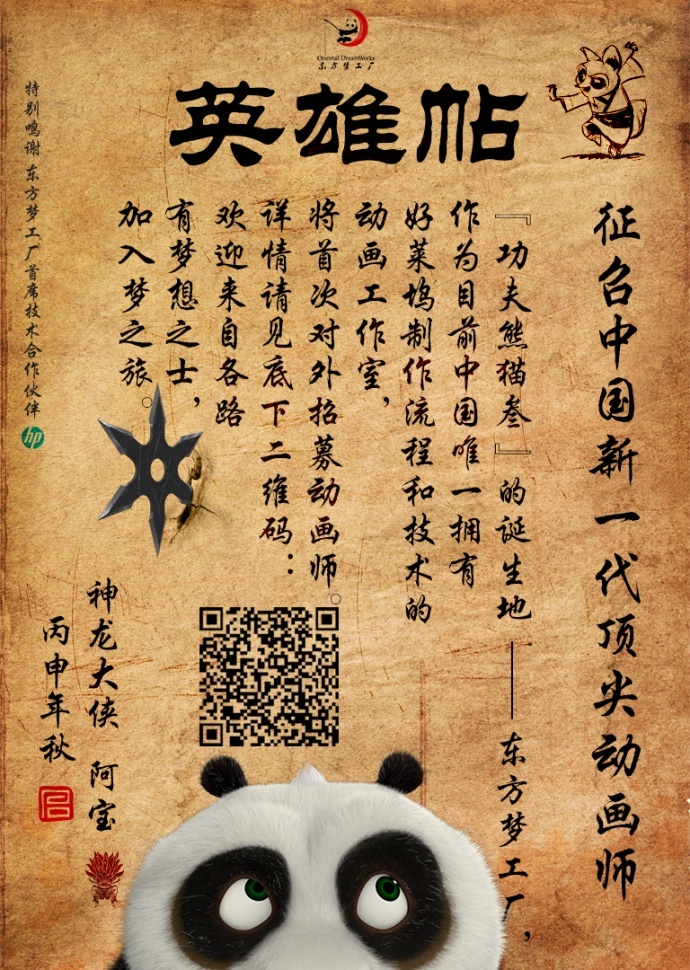 Oriental DreamWorks
东方梦工厂
英雄帖
征召中国新一代顶尖动画师
『功夫熊猫叁』的诞生地——东方梦工厂，
作为目前中国唯一拥有
好莱坞制作流程和技术的
动画工作室，
将首次对外招募动画师。
详情请见底下二维码：
欢迎来自各路
有梦想之士，
加入梦之旅。
神龙大侠 阿宝
丙申年秋
特别鸣谢 东方梦工厂首席技术合作伙伴
hp